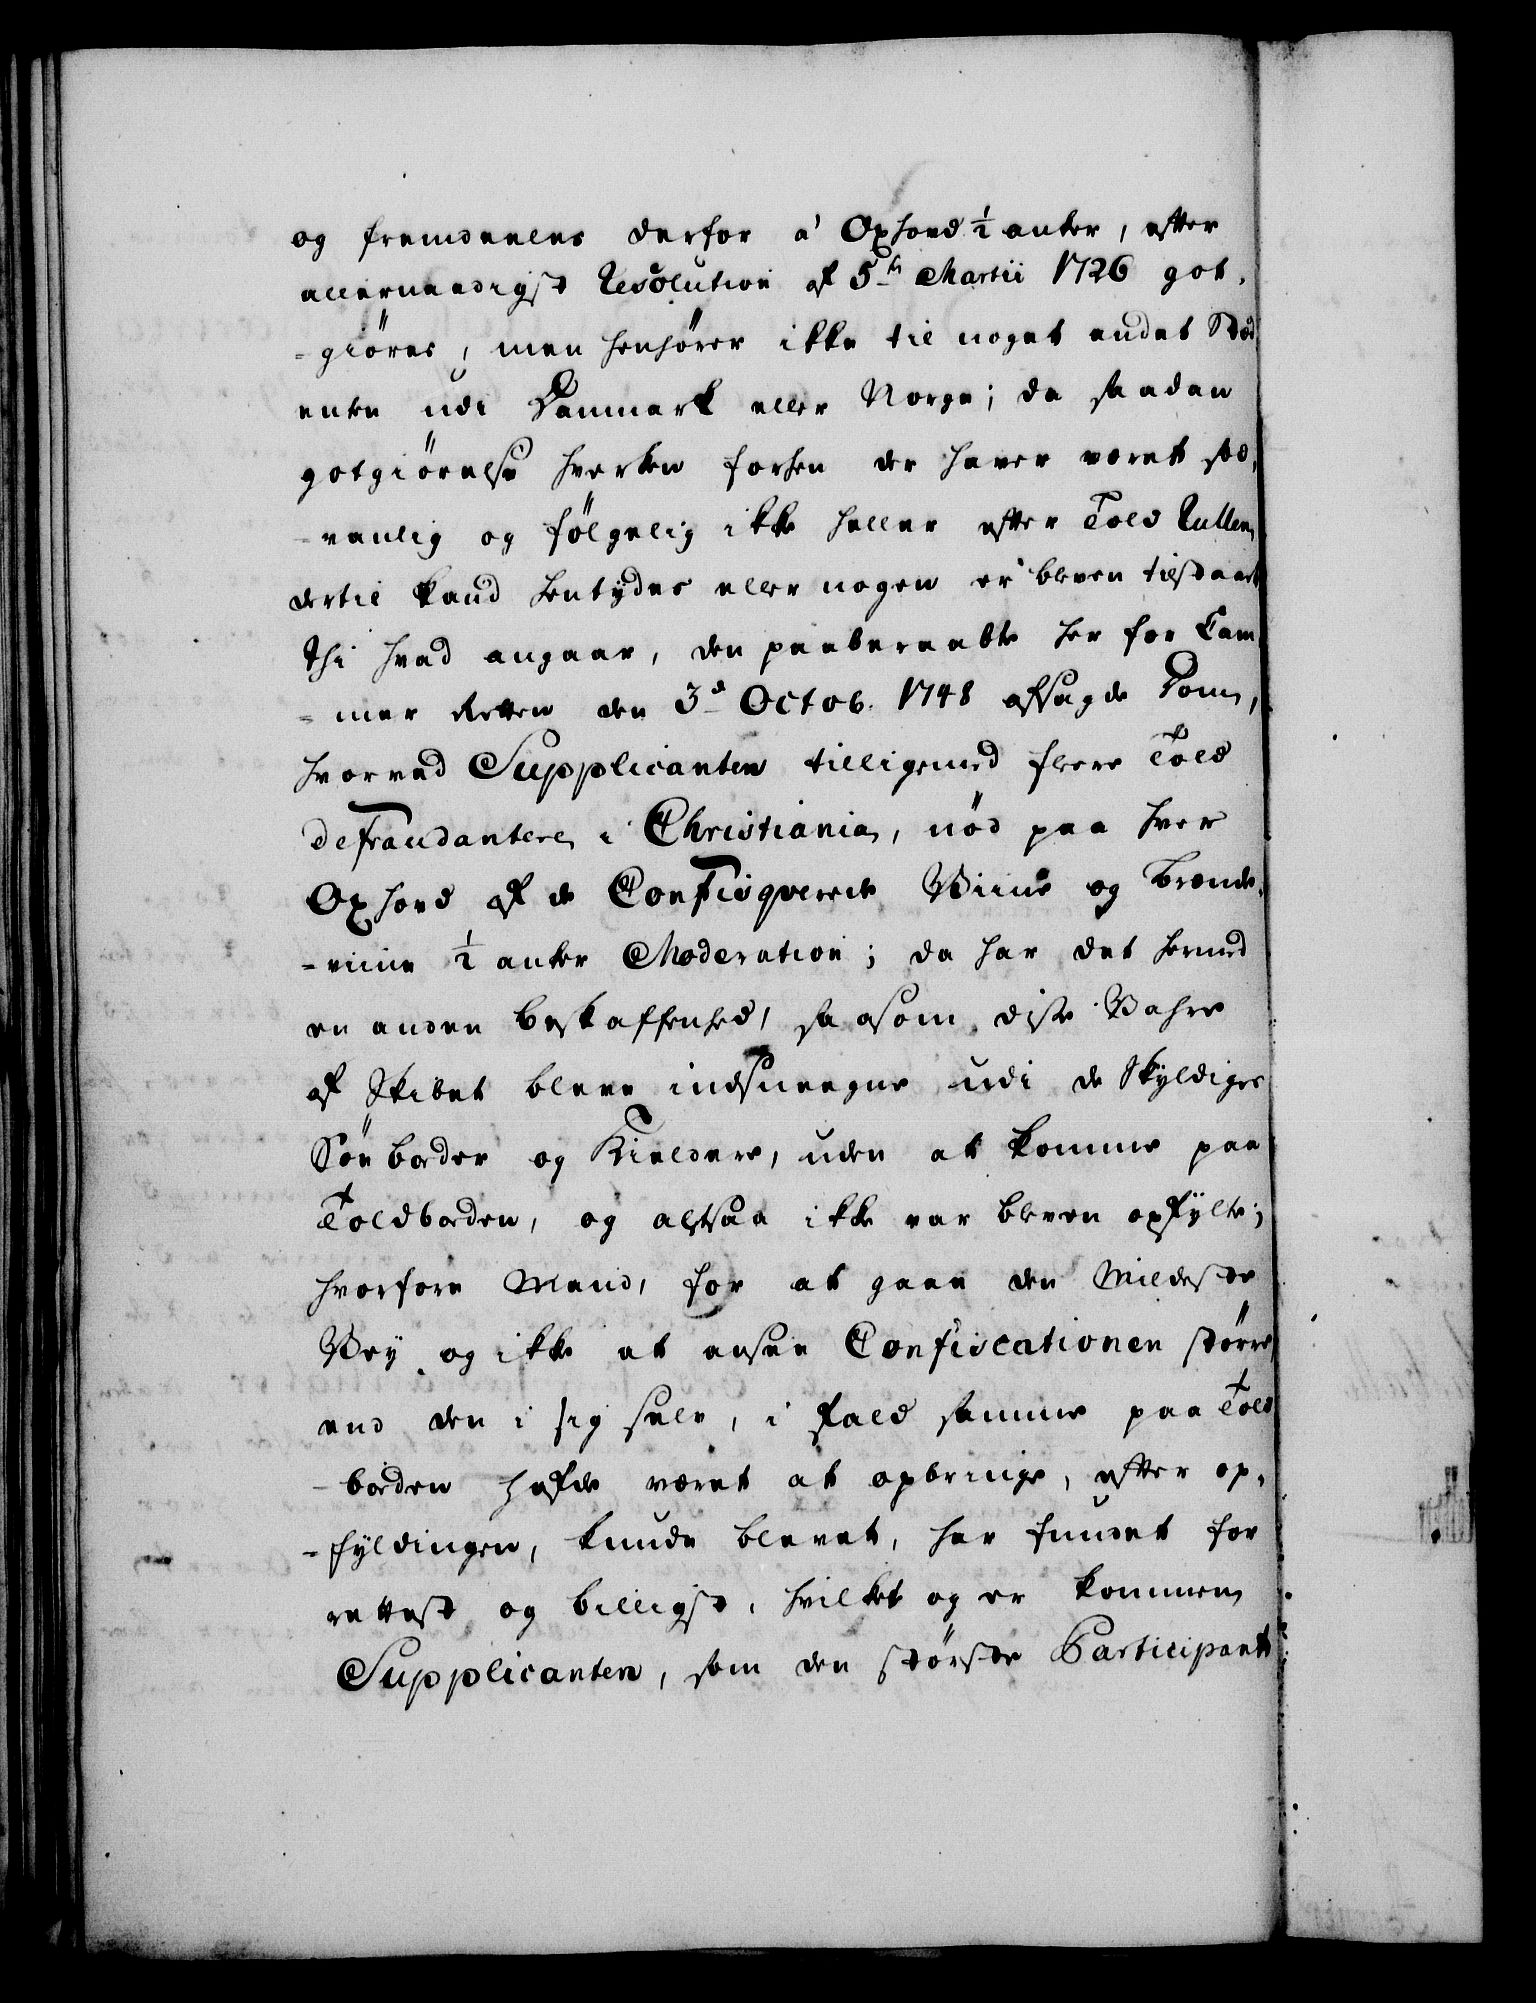 og fremdeeles derfor à Oxhovd ½ anker, efter
allernaadigst Resolution af 5te Martii 1726 got-
-giöres, men henhörer ikke til noget andet Stæd
enten udi Danmark eller Norge; da saadan
gotgiörelse hverken forhen der haver været sæd-
-vanlig og fölgelig ikke heller efter Told Rullen
dertil kand hentydes eller nogen er bleven tilstaaet
thi hvad angaar, den paaberaabte her for Cam-
-mer Retten den 3de Octob. 1748 afsagde Dom,
hvorved Supplicanten tilligemed flere Told
defraudantere i Christiania, nöd paa hver
Oxhovd af de Confisqverede Viine og Brænde-
-viine ½ anker Moderation; da har det hermed
en anden beskaffenhed, saasom disse Vahre
af Skibet bleve indsneegne udi de Skyldiges
Söe boder og Kieldere, uden at komme paa
Toldboden, og altsaa ikke var bleven opfylte;
hvorfore Mand, for at gaae den Mildeste
Vey og ikke at ansee Confiscationen större
end den i sig selv, i fald samme paa Told
-boden hafde været at opbringe, efter op-
-fyldingen, kunde blevet, har fundet for
rettest og billigst, hvilket og er kommen
Supplicanten, som den störste Participant